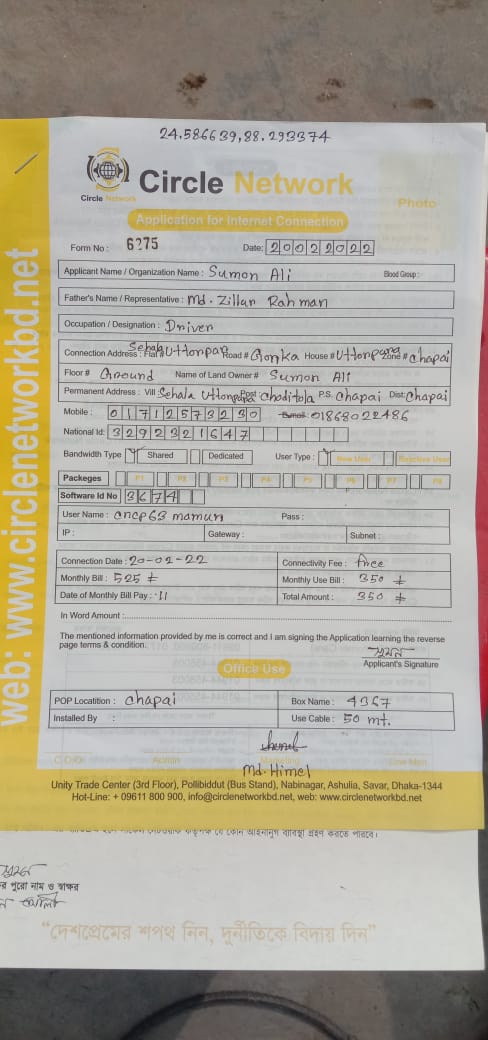 24.586639,88.293374
Circle Network
Circle Network
Photo
Application for Internet Connection
Form No : 6275 Date: 20022022
Applicant Name / Organization Name : Sumon Ali Blood Group :
Father's Name / Representative : Md. Zillar Rahman
Occupation / Designation : Driver
Connection Address : Flat # Sehala Uttonpara Road # Gonka House # Uttonpara Zone # Chapai
Floor # Ground Name of Land Owner # Sumon Ali
Permanent Address : Vill Sehala Uttonpara Post Chaditola P.S. Chapai Dist: Chapai
Mobile : 01712573230 E-mail: 01868022486
National Id: 3292321647
Bandwidth Type Shared Dedicated User Type : New User Reactive User
Packeges P1 P2 P3 P4 P5 P6 P7 P8
Software Id No 3674
User Name : cncp63 mamun Pass :
IP : Gateway : Subnet :
Connection Date : 20-02-22 Connectivity Fee : free
Monthly Bill : 525 Monthly Use Bill : 350
Date of Monthly Bill Pay : 11 Total Amount : 350
In Word Amount :
The mentioned information provided by me is correct and I am signing the Application learning the reverse
page terms & condition.
সুমন
Applicant's Signature
Office Use
POP Locatition : Chapai Box Name : 4367
Installed By : Use Cable : 50 mt.
Admin
Md. Himel
Unity Trade Center (3rd Floor), Pollibiddut (Bus Stand), Nabinagar, Ashulia, Savar, Dhaka-1344
Hot-Line: + 09611 800 900, info@circlenetworkbd.net, web: www.circlenetworkbd.net
web: www.circlenetworkbd.net
সুমন
র পুরো নাম ও স্বাক্ষর
“দেশপ্রেমের শপথ নিন, দুর্নীতিকে বিদায় দিন”